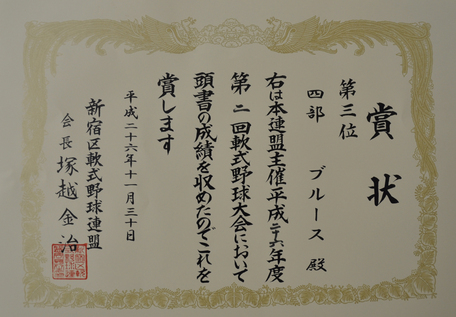 賞状
第三位
四部 ブルース 殿
右は本連盟主催平成二十六年度
第二回軟式野球大会において
頭書の成績を収めたのでこれを
賞します
平成二十六年十一月三十日
新宿区軟式野球連盟
会長 塚越金治